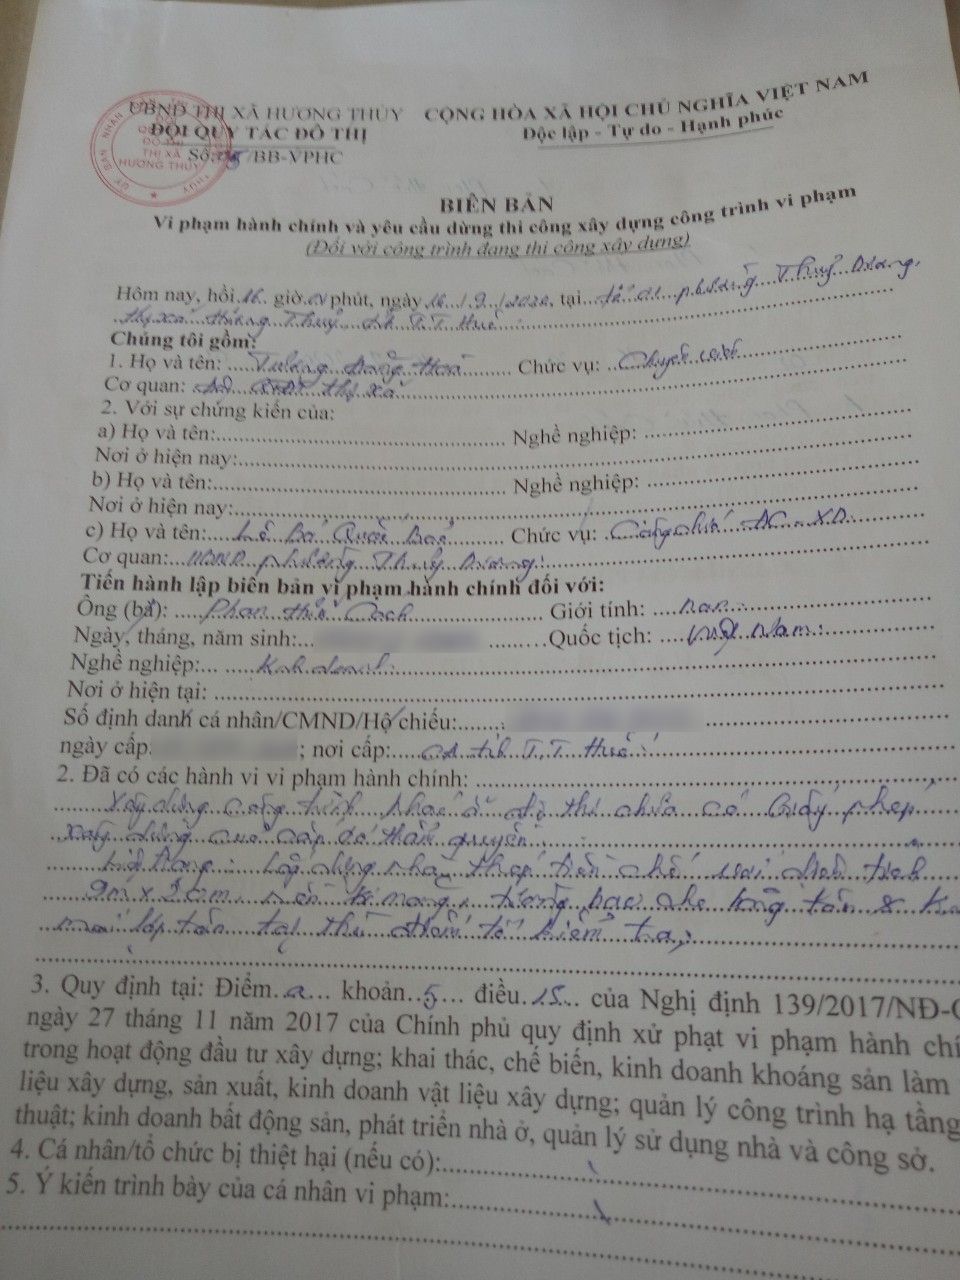 UBND THỊ XÃ HƯƠNG THỦY CỘNG HÒA XÃ HỘI CHỦ NGHĨA VIỆT NAM
ĐỘI QUY TẮC ĐÔ THỊ Độc lập - Tự do - Hạnh phúc
Số: /BB-VPHC
BIÊN BẢN
Vi phạm hành chính và yêu cầu dừng thi công xây dựng công trình vi phạm
(Đối với công trình đang thi công xây dựng)
Hôm nay, hồi 16 giờ phút, ngày 16/9/2020, tại phường Thuỷ Dương,
thị xã Hương Thuỷ, tỉnh T.T.Huế
Chúng tôi gồm:
1. Họ và tên: Chức vụ: Chuyên viên
Cơ quan: thị xã
2. Với sự chứng kiến của:
a) Họ và tên: Nghề nghiệp:
Nơi ở hiện nay:
b) Họ và tên: Nghề nghiệp:
Nơi ở hiện nay:
c) Họ và tên: Lê Bá Quốc Bảo Chức vụ: Công chức ĐC-XD
Cơ quan: UBND phường Thuỷ Dương
Tiến hành lập biên bản vi phạm hành chính đối với:
Ông (bà): Phan Cach Giới tính: nam
Ngày, tháng, năm sinh: Quốc tịch: Việt Nam
Nghề nghiệp: Kinh doanh
Nơi ở hiện tại:
Số định danh cá nhân/CMND/Hộ chiếu:
ngày cấp ; nơi cấp: CA tỉnh T.T Huế
2. Đã có các hành vi vi phạm hành chính:
Xây dựng công trình nhà ở đô thị chưa có Giấy phép
xây dựng của cấp có thẩm quyền
Hiện trạng: Lắp dựng nhà thép tiền chế với diện tích
9m x 20m, nền xi măng, tường bao che bằng tôn &
mái lợp tôn tại thời điểm kiểm tra,
3. Quy định tại: Điểm a khoản 5 điều 15 của Nghị định 139/2017/NĐ-C
ngày 27 tháng 11 năm 2017 của Chính phủ quy định xử phạt vi phạm hành chí
trong hoạt động đầu tư xây dựng; khai thác, chế biến, kinh doanh khoáng sản làm
liệu xây dựng, sản xuất, kinh doanh vật liệu xây dựng; quản lý công trình hạ tầng
thuật; kinh doanh bất động sản, phát triển nhà ở, quản lý sử dụng nhà và công sở.
4. Cá nhân/tổ chức bị thiệt hại (nếu có):
5. Ý kiến trình bày của cá nhân vi phạm: